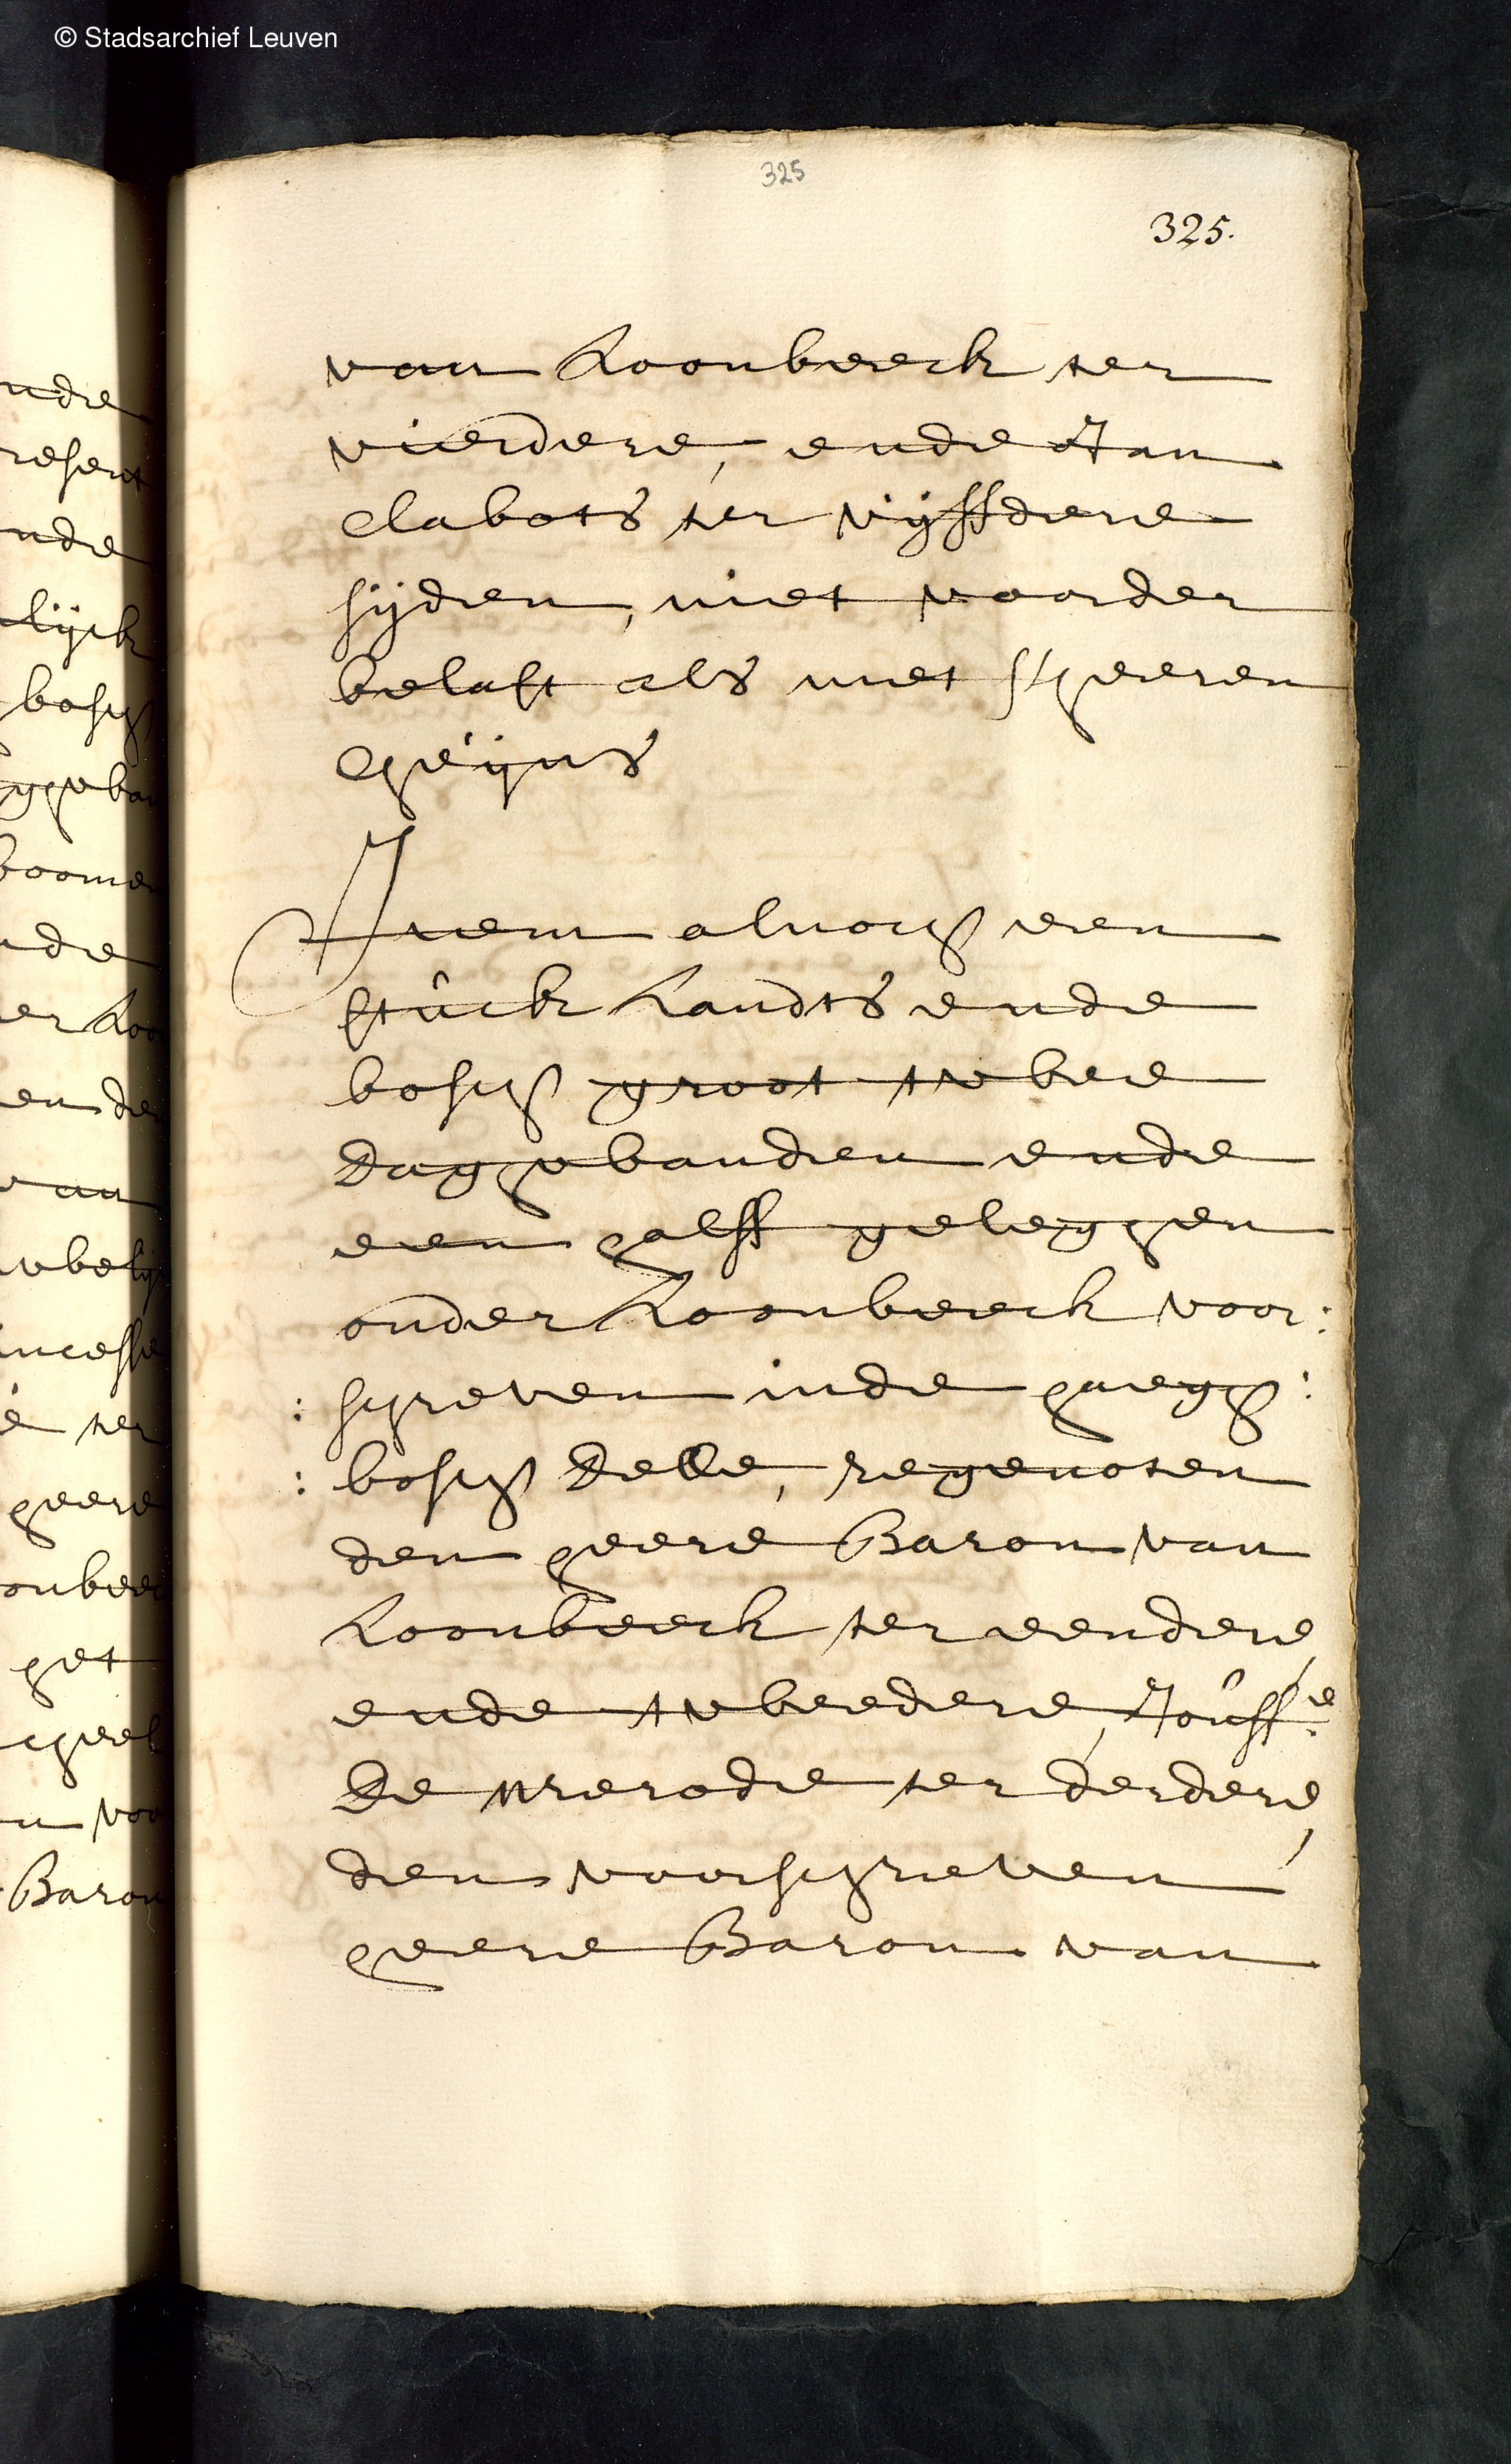 © Stadsarchief Leuven
325
325.
van Loonbeeck ter
vierdere, ende Jan
Clabots ter vijffdere
sijden, niet voorder
belast als met sheeren
cheijns
Item alnoch een
stuck Landts ende
bosch groot twee
daghwanden ende
een halff geleghen
onder Loonbeeck voor:
: schreven inde haegh:
: bosch delle, regenoten
den heere Baron van
Loonbeeck ter eendere,
ende tweedere, Jouffe.
de Merode ter derdere,
den voorschreven
heere Baron van